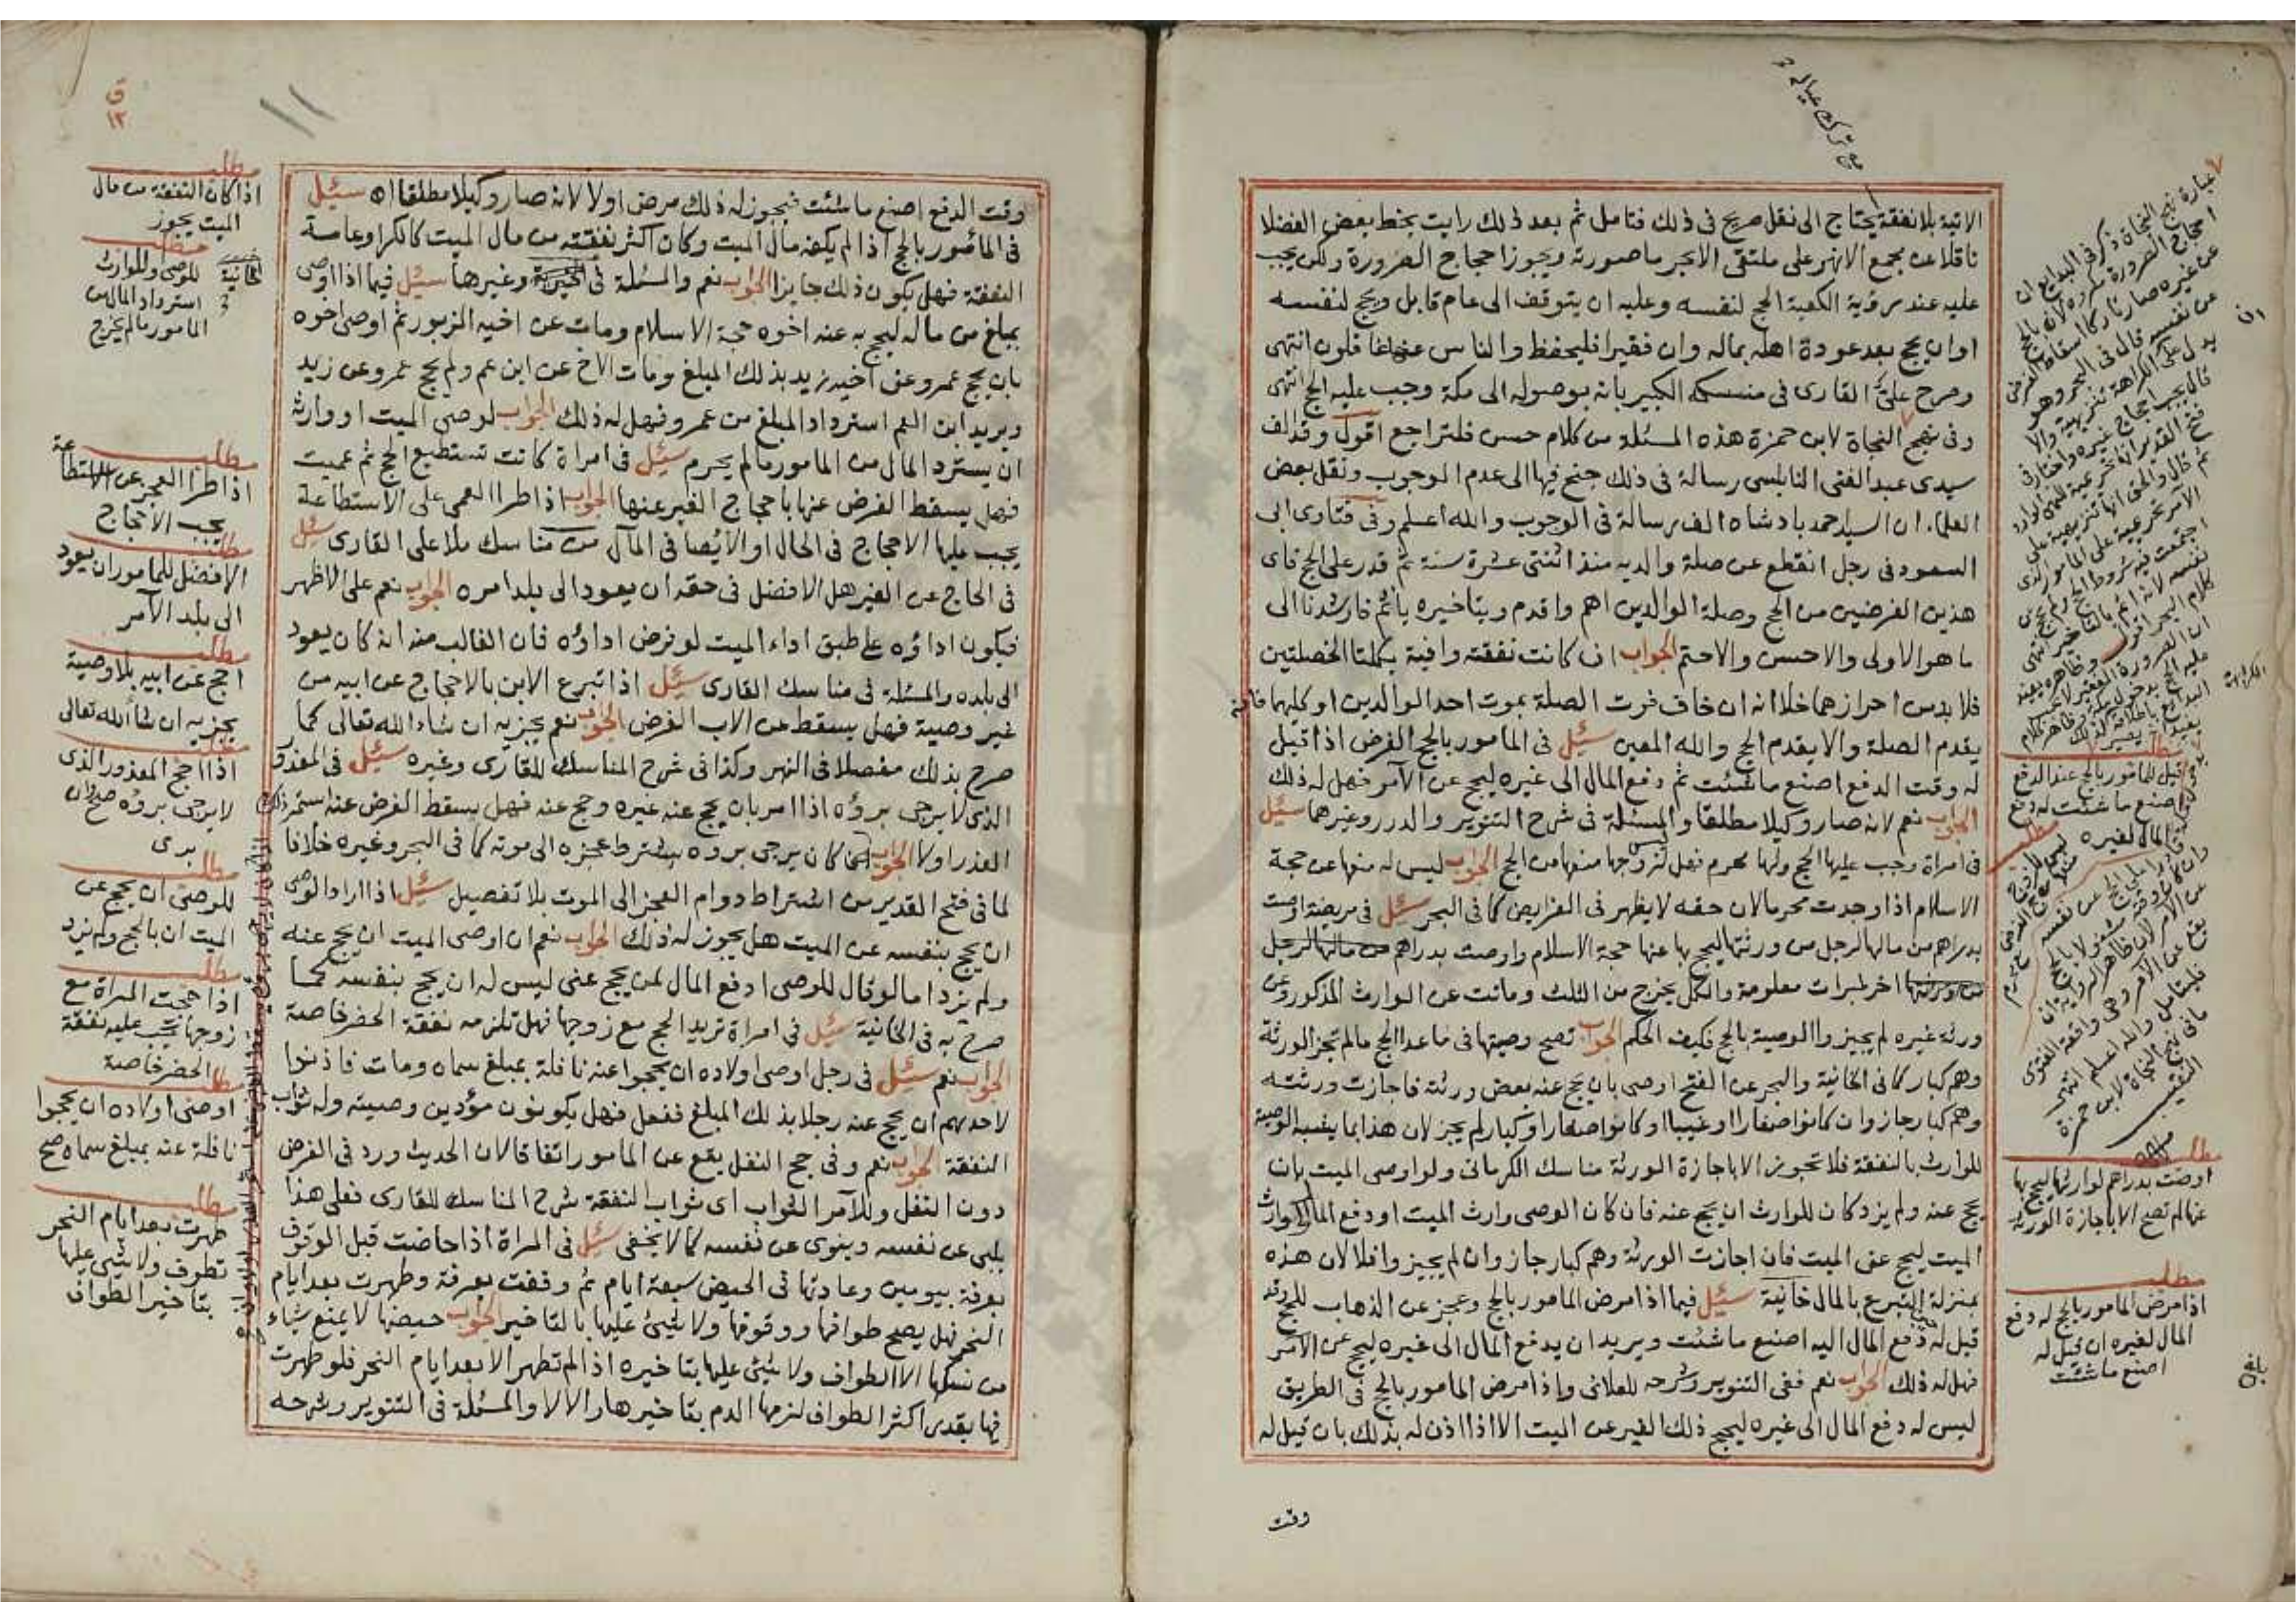 الاتية بلا نفقة يحتاج الى نقل صريح فى ذلك فتامل ثم بعد ذلك رايت بخط بعض الفضلا
ناقلا عن مجمع الانهر على ملتقى الابحر ما صورته ويجوز احجاج الصرورة ولكن يجب
عليه عند رؤية الكعبة الحج لنفسه وعليه ان يتوقف الى عام قابل ويحج لنفسه
او ان يحج بعد عودة اهله بماله وان فقيرا فليحفظ والناس عنها غافلون انتهى
وصرح على القارى فى منسكه الكبير بانه بوصوله الى مكة وجب عليه الحج انتهى
وفى نهج النجاة لابن حمزة هذه المسئلة من كلام حسن فلتراجع اقول وقد الف
سيدى عبد الغنى النابلسى رسالة فى ذلك جنح فيها الى عدم الوجوب ونقل بعض
العلماء ان السيد احمد بادشاه الف رسالة فى الوجوب والله اعلم وفى فتاوى ابى
السعود فى رجل انقطع عن صلة والديه منذ اثنتى عشرة سنة ثم قدر على الحج فاى
هذين الفرضين من الحج وصلة الوالدين اهم واقدم وبتاخيره ياثم فارشدنا الى
ما هو الاولى والاحسن والاحتم الجواب ان كانت نفقته وافية بكلتا الخصلتين
فلا بد من احرازهما خلا انه ان خاف فوت الصلة بموت احد الوالدين او كليهما فانه
يقدم الصلة والا يقدم الحج والله المعين سئل فى المامور بالحج الفرض اذا قيل
له وقت الدفع اصنع ما شئت ثم دفع المال الى غيره ليحج عن الآمر فهل له ذلك
الجواب نعم لانه صار وكيلا مطلقا والمسئلة فى شرح التنوير والدرر وغيرهما سئل
فى امراة وجب عليها الحج ولها محرم فهل لزوجها منعها من الحج الجواب ليس له منعها عن حجة
الاسلام اذا وجدت محرما لان حقه لا يظهر فى الفرايض كما فى البحر سئل فى مريضة اوصت
بدراهم من مالها لرجل من ورثتها ليحج بها عنها حجة الاسلام واوصت بدراهم من مالها لرجل
من ورثتها اخر لمبرات معلومة والكل يخرج من الثلث وماتت عن الوارث المذكور وعن
ورثة غيره لم يجيزوا الوصية بالحج فكيف الحكم الجواب تصح وصيتها فى ما عدا الحج ما لم تجز الورثة
وهم كبار كما فى الخانية والبحر عن الفتح اوصى بان يحج عنه بعض ورثته فاجازت ورثته
وهم كبار جاز وان كانوا صغارا او غيبا او كانوا صغارا وكبار لم يجز لان هذا بما يشبه الوصية
للوارث بالنفقة فلا تجوز الا باجازة الورثة مناسك الكرمانى ولو اوصى الميت بان
يحج عنه ولم يزد كان للوارث ان يحج عنه فان كان الوصى وارث الميت او دفع المال لوارث
الميت ليحج عن الميت فان اجازت الورثة وهم كبار جاز وان لم يجيزوا فلا لان هذه
بمنزلة التبرع بالمال خانية سئل فيما اذا مرض المامور بالحج وعجز عن الذهاب للحج وقد
قيل له دفع المال اليه اصنع ما شئت ويريد ان يدفع المال الى غيره ليحج عن الآمر
فهل له ذلك الجواب نعم ففى التنوير وشرحه للعلائى واذا مرض المامور بالحج فى الطريق
ليس له دفع المال الى غيره ليحج ذلك الغير عن الميت الا اذا اذن له بذلك بان قيل له
وقت
مطلب
قيل للمامور بالحج عند الدفع
اصنع ما شئت له دفع
المال لغيره
مطلب
اوصت بدراهم لوارثها ليحج بها
عنها لم تصح الا باجازة الورثة
مطلب
اذا مرض المامور بالحج له دفع
المال لغيره ان قيل له
اصنع ما شئت
وقت الدفع اصنع ما شئت فيجوز له ذلك مرض اولا لانه صار وكيلا مطلقا اه سئل
فى المامور بالحج اذا لم يكفه مال الميت وكان اكثر نفقته من مال الميت كالكرا وعامة
النفقة فهل يكون ذلك جايزا الجواب نعم والمسئلة فى الخيرية وغيرها سئل فيما اذا اوصى
بمبلغ من ماله ليحج به عنه اخوه حجة الاسلام ومات عن اخيه المزبور ثم اوصى اخوه
بان يحج عمرو عن اخيه زيد بذلك المبلغ ومات الاخ عن ابن عم ولم يحج عمرو عن زيد
ويريد ابن العم استرداد المبلغ من عمرو فهل له ذلك الجواب لوصى الميت او وارثه
ان يسترد المال من المامور ما لم يحرم سئل فى امراة كانت تستطيع الحج ثم عميت
فهل يسقط الفرض عنها باحجاج الغير عنها الجواب اذا طرا العمى على الاستطاعة
يجب عليها الاحجاج فى الحال او الايصا فى المآل من مناسك ملا على القارى سئل
فى الحاج عن الغير هل الافضل فى حقه ان يعود الى بلد امره الجواب نعم على الاظهر
فيكون اداؤه على طبق اداء الميت لو فرض اداؤه فان الغالب منه انه كان يعود
الى بلده والمسئلة فى مناسك القارى سئل اذا تبرع الابن بالاحجاج عن ابيه من
غير وصية فهل يسقط عن الاب الفرض الجواب نعم يجزيه ان شاء الله تعالى كما
صرح بذلك مفصلا فى النهر وكذا فى شرح المناسك للقارى وغيره سئل فى المعذور
الذى لا يرجى برؤه اذا امر بان يحج عنه غيره وحج عنه فهل يسقط الفرض عنه استمر ذلك
العذر اولا الجواب انما كان يرجى بروه يشترط عجزه الى موته كما فى البحر وغيره خلافا
لما فى فتح القدير من اشتراط دوام العجز الى الموت بلا تفصيل سئل اذا اراد الوصى
ان يحج بنفسه عن الميت هل يجوز له ذلك الجواب نعم ان اوصى الميت ان يحج عنه
ولم يزد اما لو قال للوصى ادفع المال لمن يحج عنى ليس له ان يحج بنفسه كما
صرح به فى الخانية سئل فى امراة تريد الحج مع زوجها فهل تلزمه نفقة الحضر خاصة
الجواب نعم سئل فى رجل اوصى اولاده ان يحجوا عنه نافلة بمبلغ سماه ومات فاذنوا
لاحدهم ان يحج عنه رجلا بذلك المبلغ ففعل فهل يكونون مؤدين وصيته وله ثواب
النفقة الجواب نعم وفى حج النفل يقع عن المامور اتفاقا لان الحديث ورد فى الفرض
دون النفل وللآمر الثواب اى ثواب النفقة شرح المناسك للقارى فعلى هذا
يلبى عن نفسه وينوى عن نفسه كما لا يخفى سئل فى المراة اذا حاضت قبل الوقوف
بعرفة بيومين وعادتها فى الحيض سبعة ايام ثم وقفت بعرفة وطهرت بعد ايام
النحر فهل يصح طوافها ووقوفها ولا شيئ عليها بالتاخير الجواب حيضها لا يمنع شياء
من نسكها الا الطواف ولا شيئ عليها بتاخيره اذا لم تطهر الا بعد ايام النحر فلو طهرت
فيها بقدر اكثر الطواف لزمها الدم بتاخير هار الا لا والمسئلة فى التنوير وشرحه
ق
١٢
١١
مطلب
اذا كان النفقة من مال
الميت يجوز
مطلب
للوصى وللوارث
استرداد المال من
المامور ما لم يحرم
خانية
مطلب
اذا طرا العجز عن الاستطاعة
يجب الاحجاج
مطلب
الافضل للمامور ان يعود
الى بلد الآمر
مطلب
احج عن ابيه بلا وصية
يجزيه ان شاء الله تعالى
مطلب
اذا احج المعذور الذى
لا يرجى بروه صح وان
برى
مطلب
للوصى ان يحج عن
الميت ان بالحج ولم يزد
مطلب
اذا حجت المراة مع
زوجها يجب عليه نفقة
الحضر خاصة
مطلب
اوصى اولاده ان يحجوا
نافلة عنه بمبلغ سماه صح
مطلب
طهرت بعد ايام النحر
تطوف ولا شيئ عليها
بتاخير الطواف